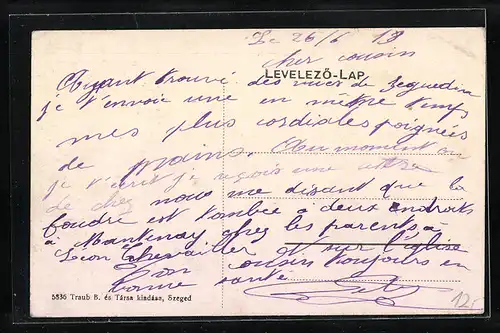 Le 26/6 13
cher cousin
LEVELEZŐ-LAP
Ayant trouvé des vues de Szeguedin
je t'envoie une en même temps
mes plus cordiales poignées
de mains. Au moment où
je t'écris je reçois une lettre
de chez nous me disant que la
foudre est tombée à deux endroits
à Mantenay chez les parents à
Léon Chevallier et sur l'église
Ton cousin toujours en
bonne santé
5836 Traub B. és Társa kiadása, Szeged
12.-